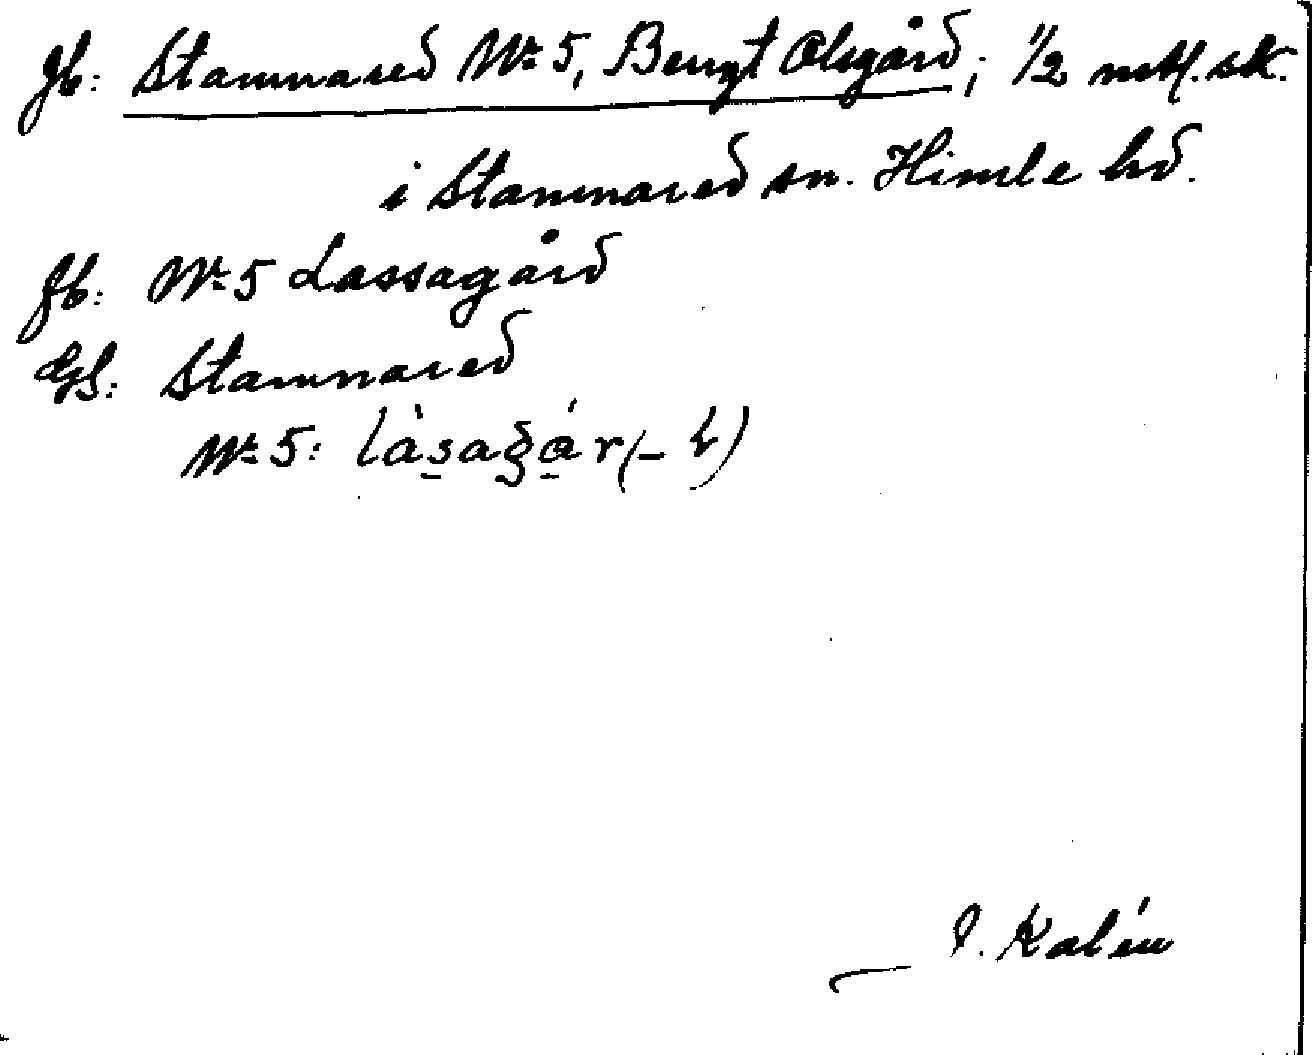 Jb: Stamnared No 5, Bengt Olsgård; 1/2 mtl. sk.
i Stamnared sn. Himle hd.
Jb: No 5 Lassagård
GS: Stamnared
No 5: làsagár (-
J. Kalén